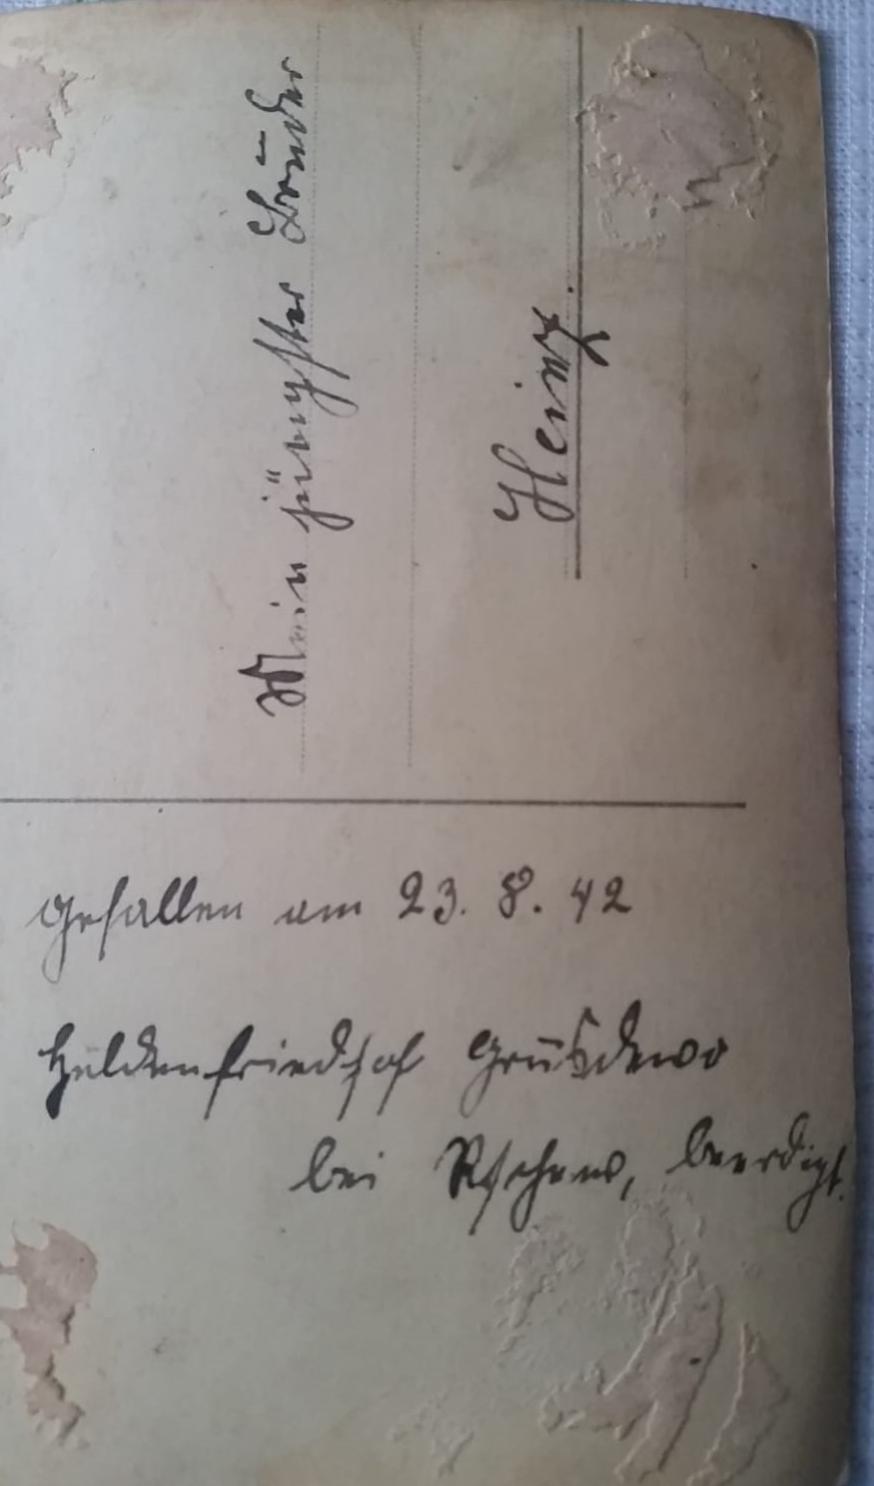 Mein jüngster Bruder
Heinz.
gefallen am 23. 8. 42
Heldenfriedhof Grusdewo
bei Rschew, beerdigt.